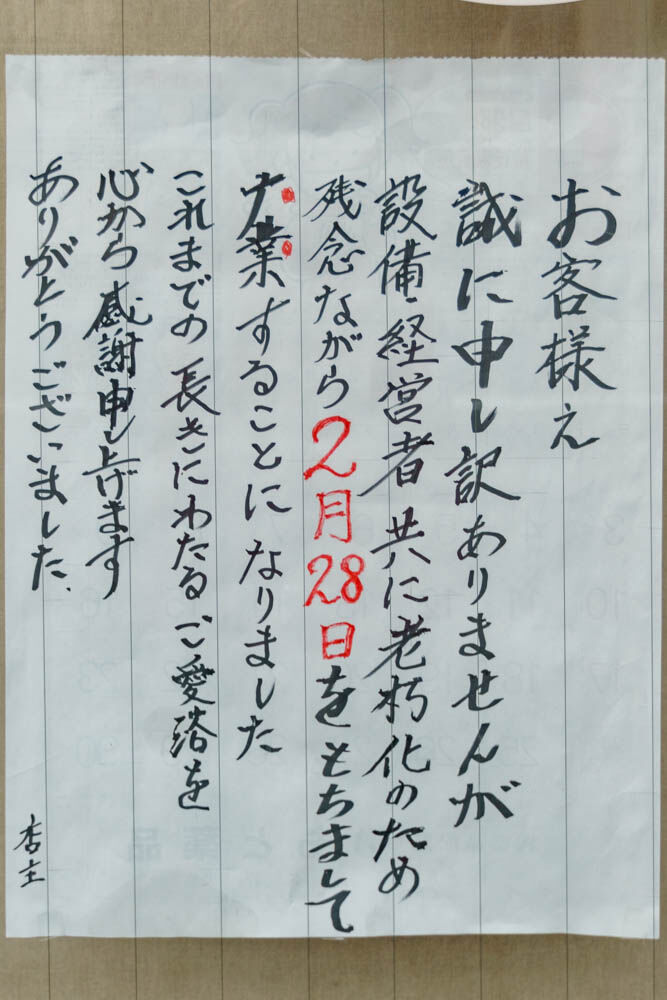 お客様え
誠に申し訳ありませんが
設備、経営者共に老朽化のため
残念ながら2月28日をもちまして
業することになりました
これまでの長きにわたるご愛を
心から感謝申し上げます
ありがとうございました、
店主